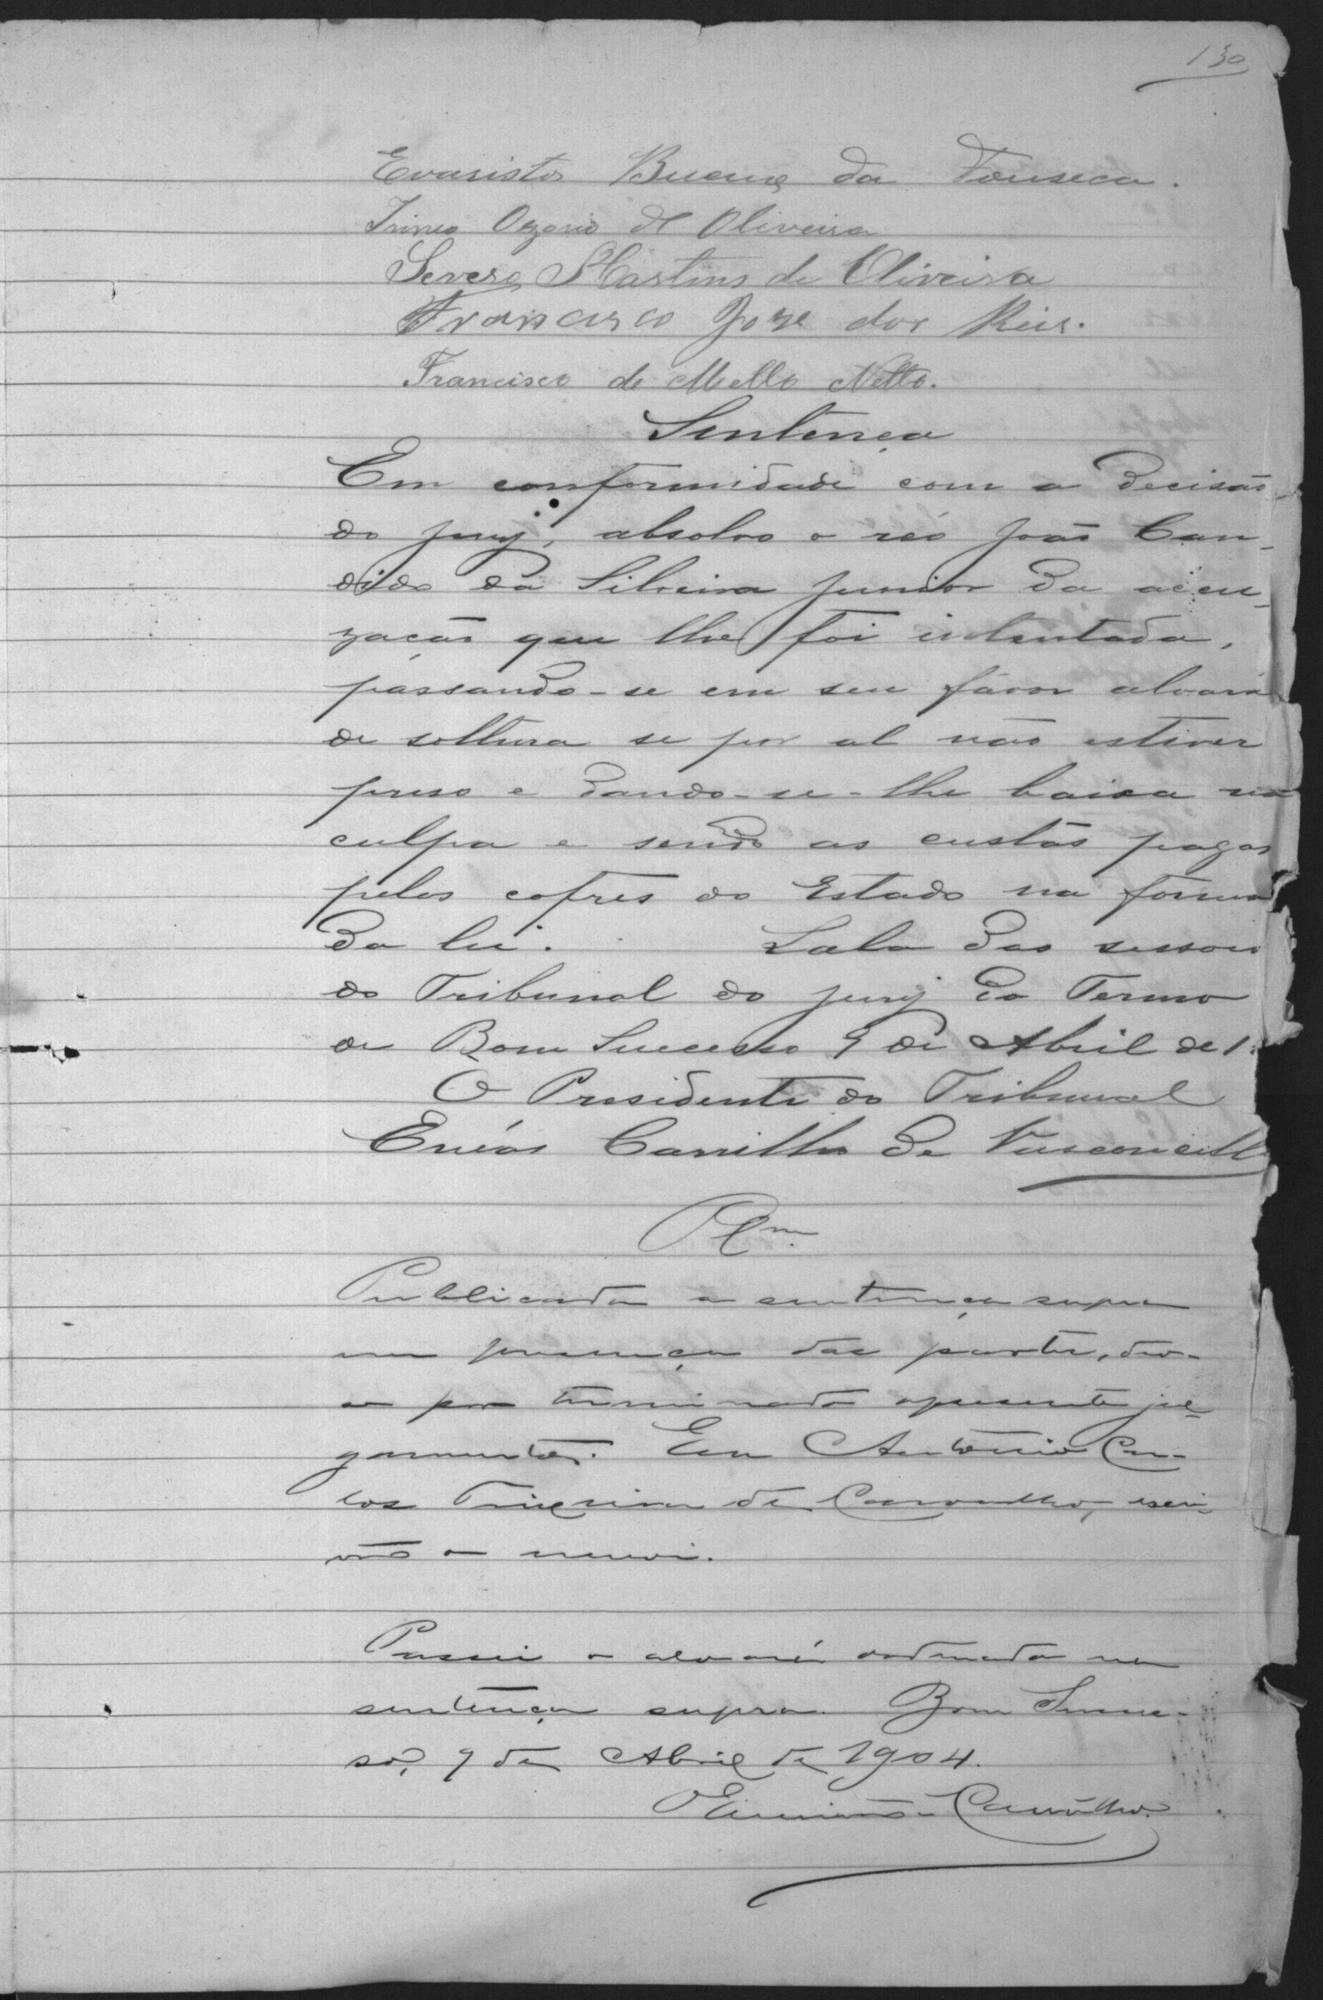 130
Evaristo Bueno da Fonseca.
Irineo Ozorio de Oliveira
Severo Martins de Oliveira
Francisco Joze dos Reis.
Francisco de Mello Netto.
Sentença
Em conformidade com a decisão
do jury, absolvo o réo João Can-
dido da Silveira Junior da accu-
zação que lhe foi intentada,
passando-se em seu favor alvará
de soltura se por al não estiver
preso e dando-se-lhe baixa na
culpa e sendo as custas pagas
pelos cofres do Estado na forma
da lei. Sala das sessões
do Tribunal do jury do Termo
de Bom Successo 9 de Abril de 1
O Presidente do Tribunal
Enéas Carrilho de Vasconcell
Publicada a sentença supra
na presença das partes, deu-
se por terminado o presente jul-
gamento. Eu Antonio Car-
los Teixeira de Carvalho, escri-
vão o escrevi.
Passei o alvará ordenado na
sentença supra. Bom Succes-
so, 9 de Abril de 1904.
O Escrivão Carvalho.